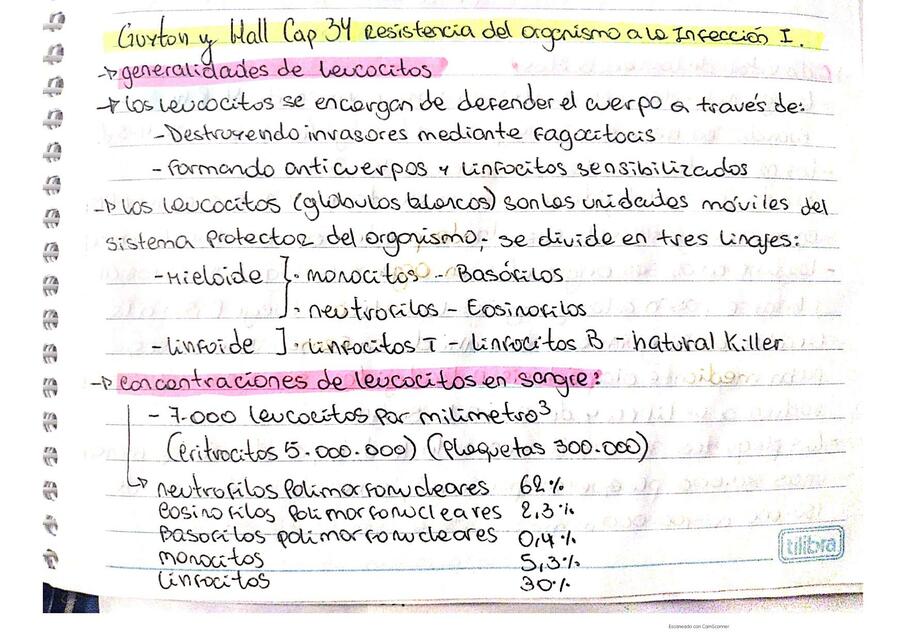 Guyton y Hall Cap 34 Resistencia del organismo a la Infección I.
→ generalidades de leucocitos
→ los leucocitos se encargan de defender el cuerpo a través de:
- Destruyendo invasores mediante fagocitocis
- formando anticuerpos y linfocitos sensibilizados
→ los leucocitos (glóbulos blancos) son las unidades móviles del
sistema protector del organismo, se divide en tres linajes:
- Mieloide } · monocitos - Basófilos
· neutrofilos - Eosinofilos
- linfoide ] · linfocitos T - linfocitos B - natural Killer
→ concentraciones de leucocitos en sangre:
- 7.000 leucocitos por milimetro³
(eritrocitos 5.000.000) (plaquetas 300.000)
↳ neutrofilos polimorfonucleares 62%
eosinofilos polimorfonucleares 2,3%
Basofilos polimorfonucleares 0,4%
monocitos 5,3%
linfocitos 30%
tilibra
Escaneado con CamScanner